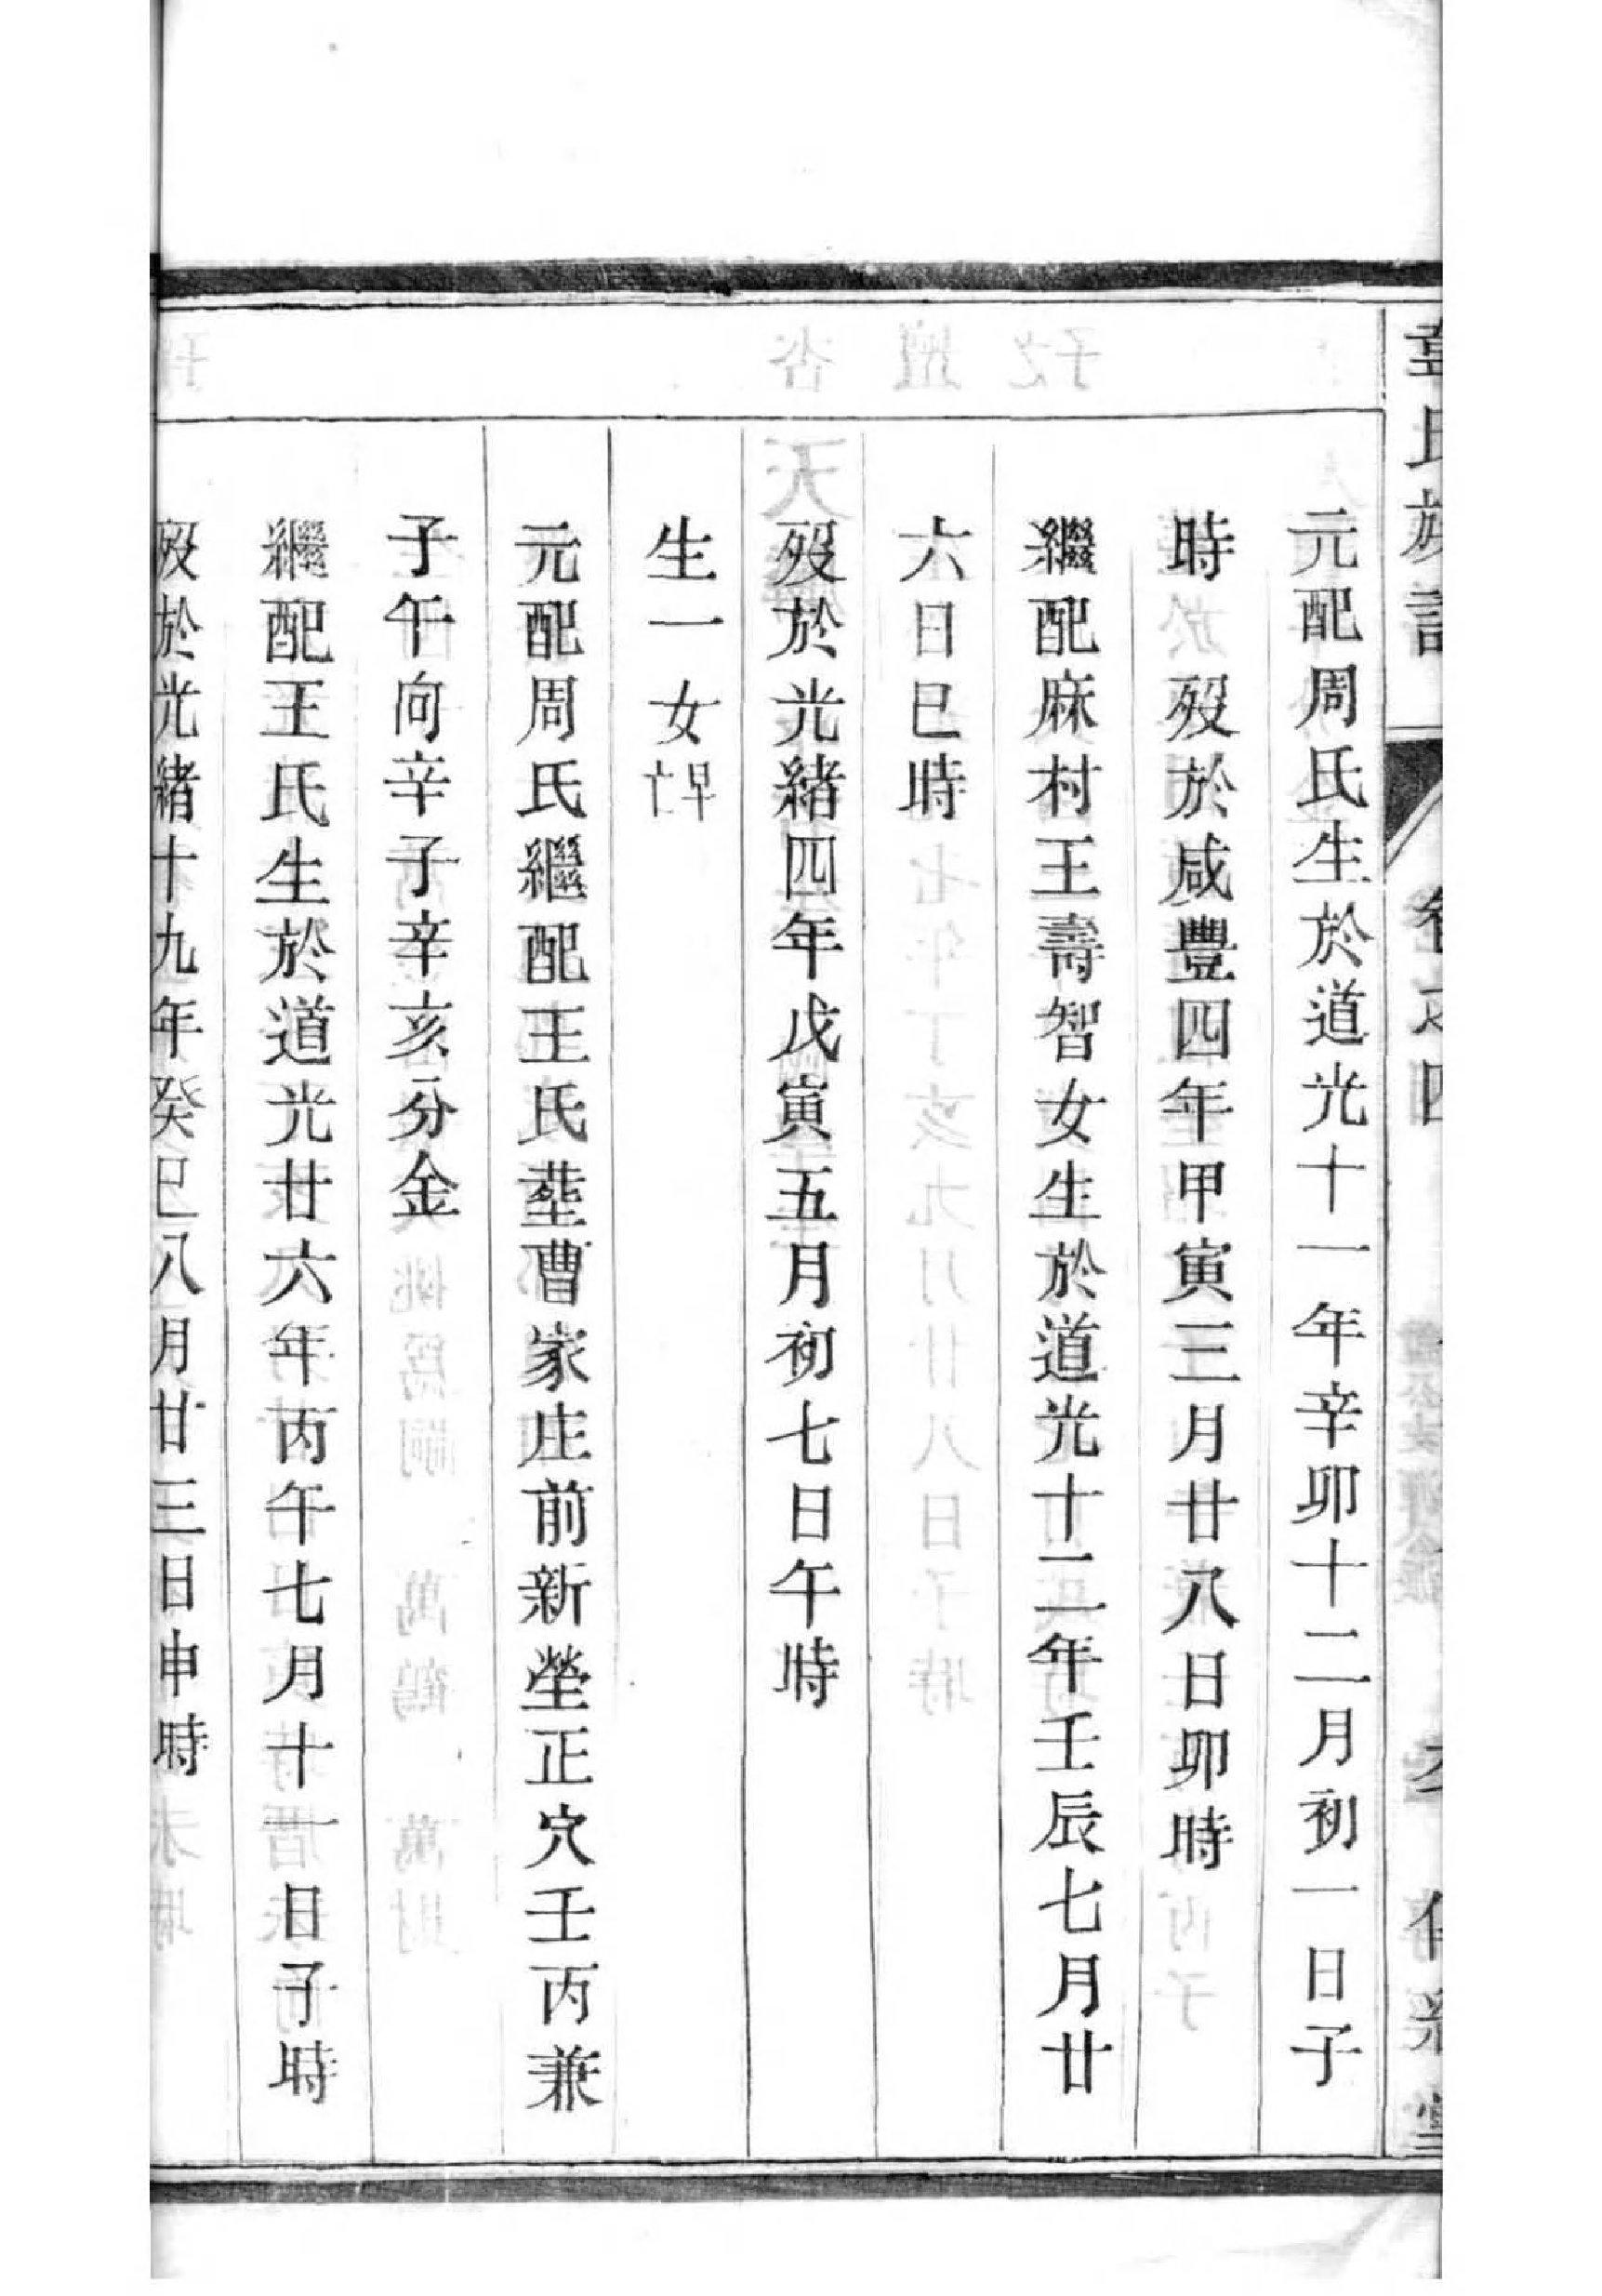 氏族譜 卷之四
元配周氏生於道光十一年辛卯十二月初一日子
時 歿於咸豐四年甲寅三月廿八日卯時
繼配麻村王壽智女生於道光十二年壬辰七月廿
六日巳時
歿於光緒四年戊寅五月初七日午時
生一女早亡
元配周氏繼配王氏塟曹家庄前新塋正穴壬丙兼
子午向辛子辛亥分金
繼配王氏生於道光廿六年丙午七月十一日子時
歿於光緒十九年癸巳八月廿三日申時